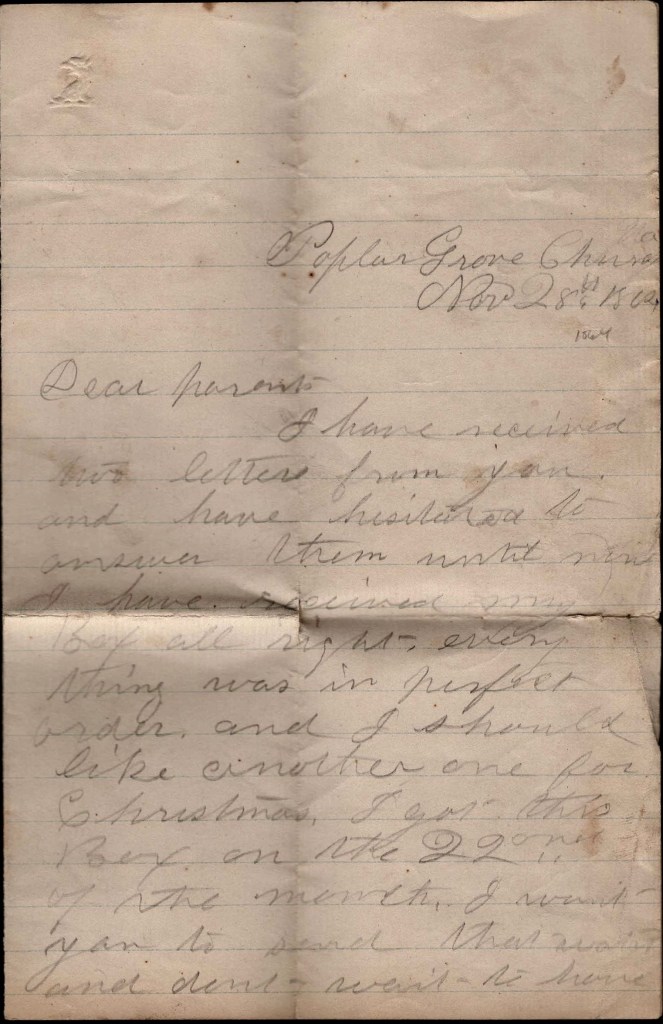 Va
Poplar Grove Church
Nov 28th 1864
1864
Dear parents
I have received
two letters from you.
and have hesitated to
answer them until now
I have received my
Box all right. every
thing was in perfect
order. and I should
like another one for
Christmas, I got this
Box on the 22ond
of the month. I want
you to send that
and dont wait to have